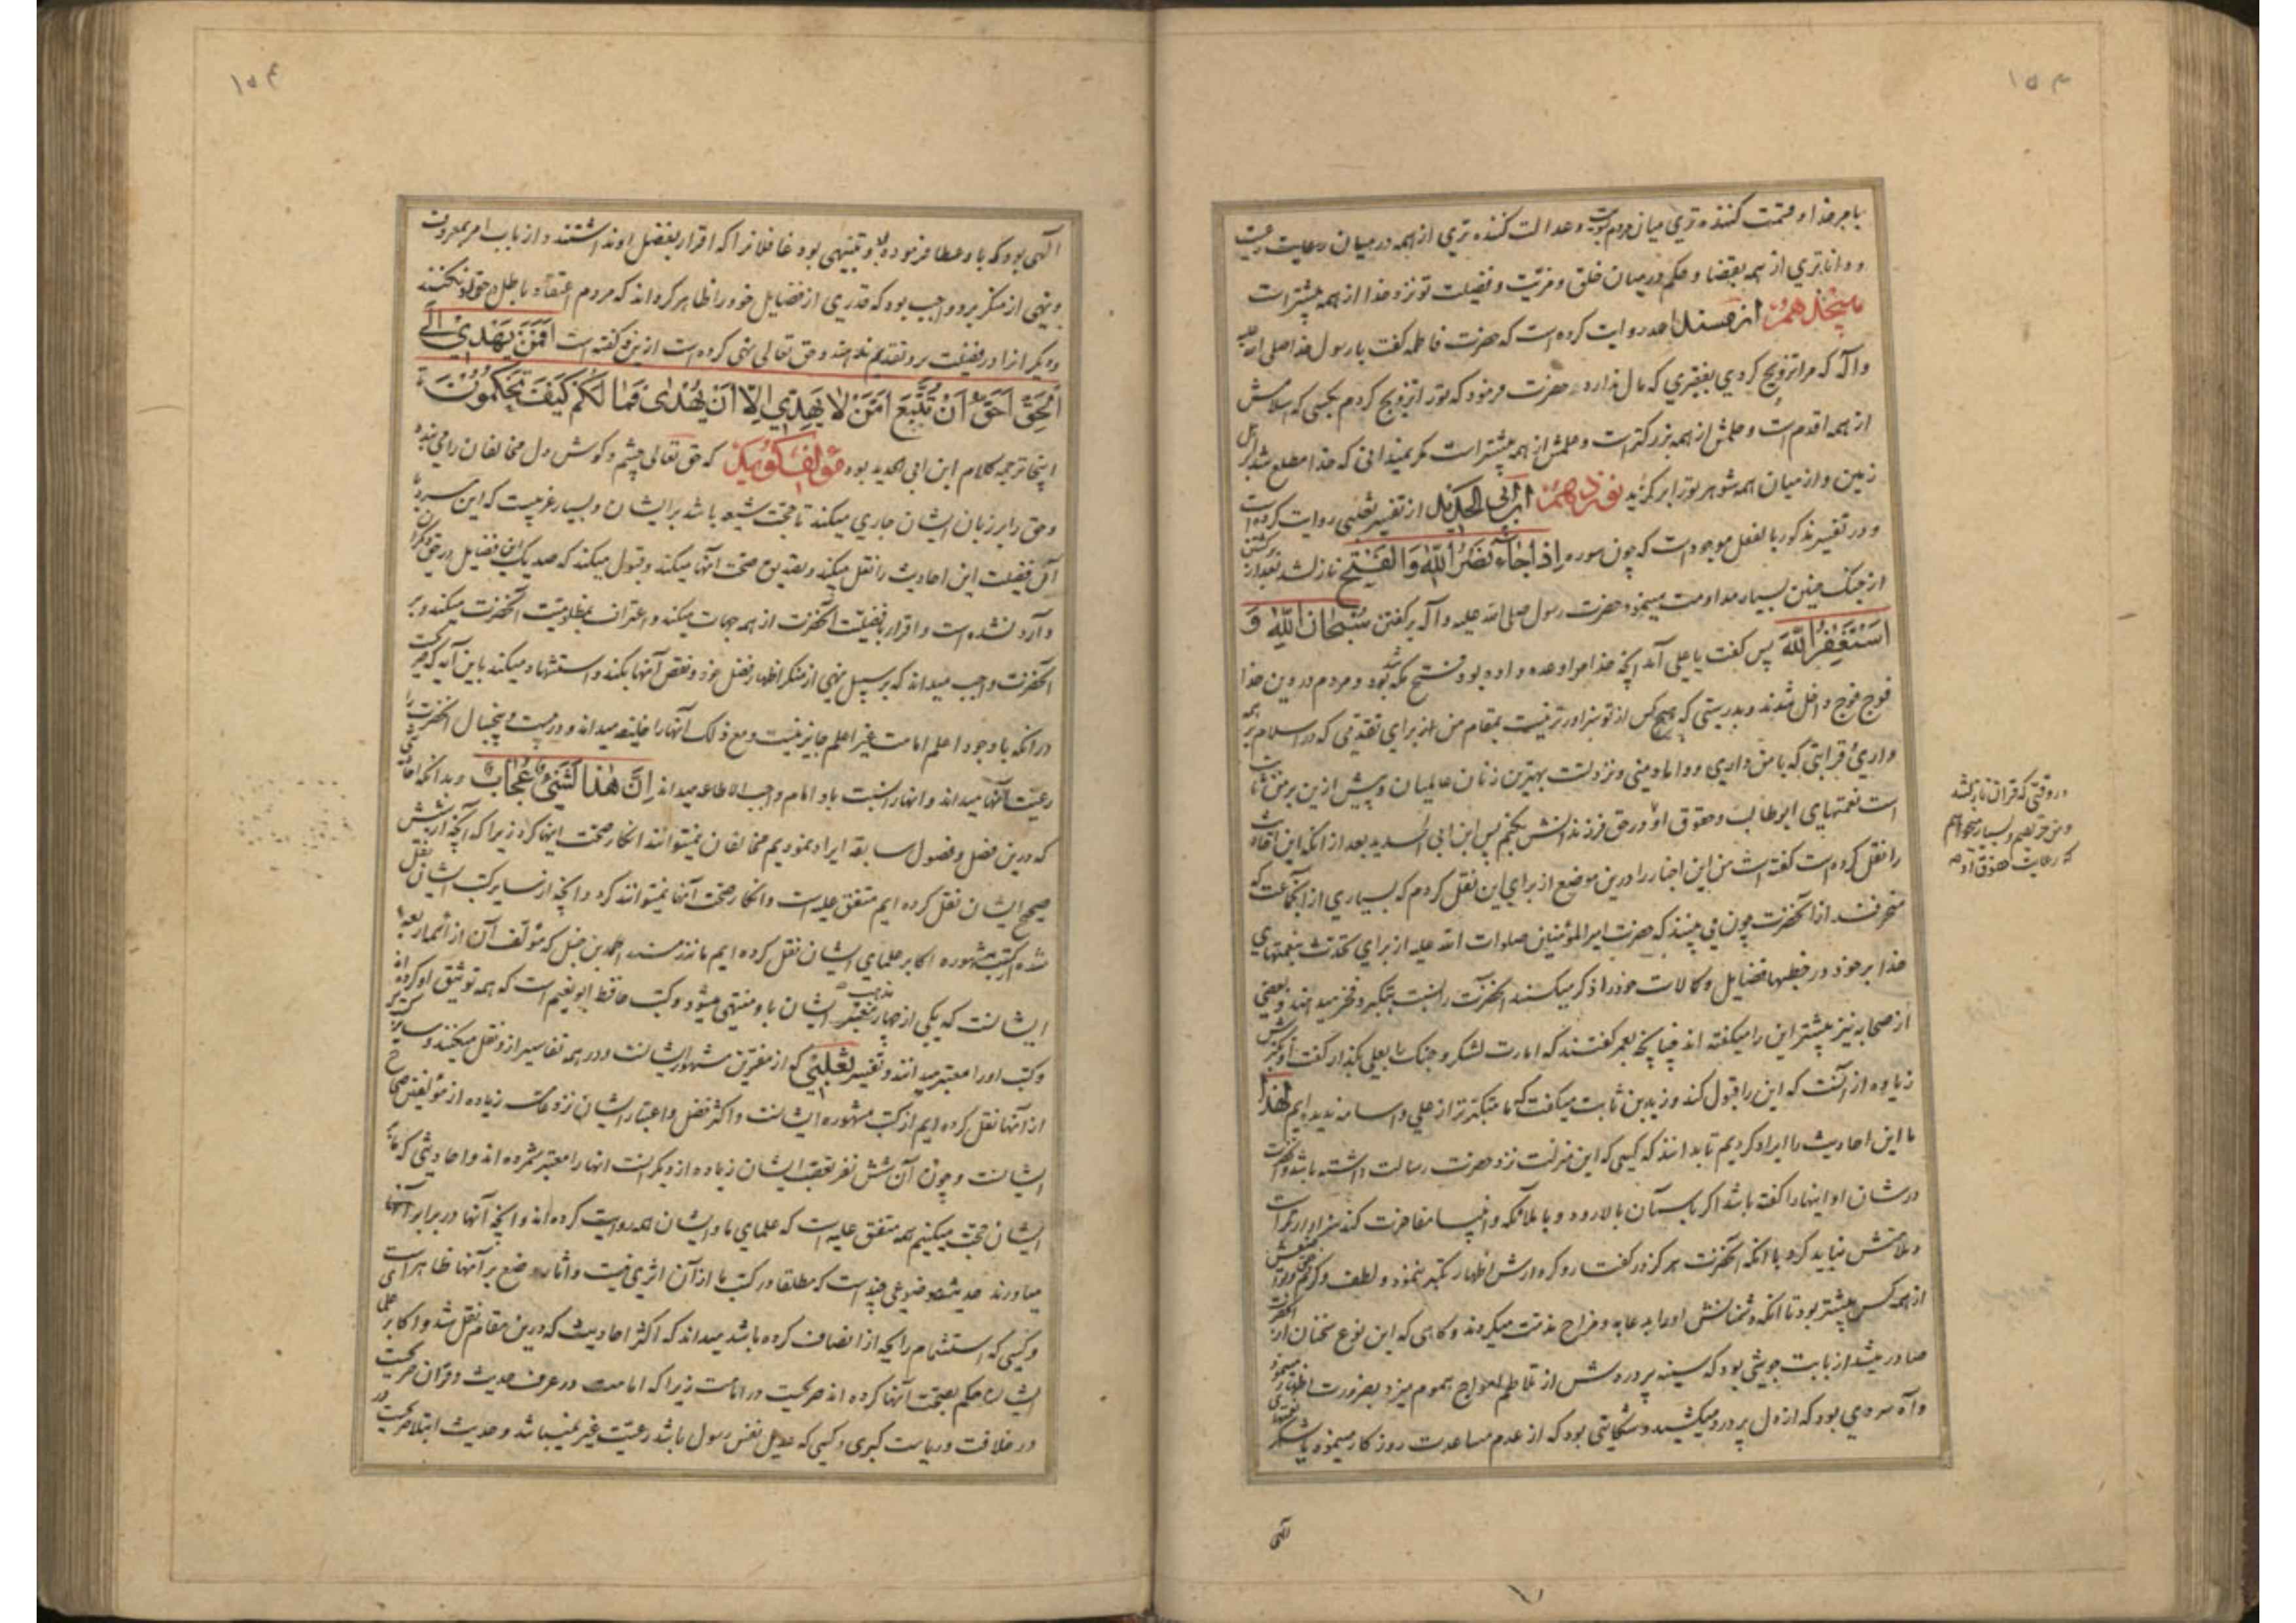 با مر خدا و قسمت کننده تری میان مردم بسویت و عدالت کننده تری از همه در میان رعایت رعیت
و داناتری از همه بقضا و حکم در میان خلق و مزیّت و فضیلت تو نزد خدا از همه بیشتر است
پانجدهم از مسند احمد روایت کرده است که حضرت فاطمه گفت یا رسول خدا صلی الله علیه
و آله که مرا تزویج کردی بفقیری که مال ندارد حضرت فرمود که تو را تزویج کردم بکسی که اسلامش
از همه اقدم است و حلمش از همه بزرگتر است و علمش از همه بیشتر است مگر نمیدانی که خدا مطلع شد بر اهل
زمین و از میان همه شوهر تو را برگزید نوزدهم ابن ابی الحدید از تفسیر ثعلبی روایت کرده است
و در تفسیر مذکور بالفعل موجود است که چون سوره اِذا جاءَ نَصْرُ اللهِ وَالْفَتْح نازل شد بعد از برگشتن
از جنگ حنین بسیار مداومت مینمود حضرت رسول صلی الله علیه و آله بر گفتن سُبْحانَ اللهِ وَ
اَسْتَغْفِرُ اللهَ پس گفت یا علی آمد آنچه خدا مرا وعده داده بود فتح مکه شد و مردم در دین خدا
فوج فوج داخل شدند و بدرستی که هیچ کس از تو سزاوارتر نیست بمقام من از برای تقدّمی که در اسلام بر همه
داری و قرابتی که با من داری و داماد منی و نزد تست بهترین زنان عالمیان و پیش ازین بر من ثابت
است نعمتهای ابوطالب و حقوق او در حق فرزندانش بکنم پس ابن ابی الحدید بعد از آنکه این احادیث
را نقل کرده است گفته است من این اخبار را درین موضع از برای این نقل کردم که بسیاری از آنجماعت که
منحرفند از آنحضرت چون می بینند که حضرت امیر المؤمنین صلوات الله علیه از برای تحدث بنعمتهای
خدا بر خود در خطبها فضایل و کمالات خود را ذکر میکنند آنحضرت را نسبت بتکبر و فخر میدهند و بعضی
از صحابه نیز پیشتر این را میگفته اند چنانچه بعمر گفتند که امارت لشکر و جنگ را بعلی بگذار گفت او تکبرش
زیاده از آنست که این را قبول کند و زید بن ثابت میگفت که ما متکبرتر از علی و اسامه ندیده ایم لهذا
ما این احادیث را ایراد کردیم تا بدانند که کسی که این منزلت نزد حضرت رسالت داشته باشد و آنحضرت
در شان او اینها را گفته باشد اگر باسمان بالا رود و با ملائکه و انبیا مفاخرت کند سزاوار است
و ملامتش نباید کرد با آنکه آنحضرت هرگز در گفتار و کردارش اظهار تکبر ننمود و لطف و کرم و تواضعش
از همه کس بیشتر بود تا آنکه دشمنانش او را به دعابه و مزاح مذمت میکردند و گاهی که این نوع سخنان از آنحضرت
صادر میشد از بابت جوششی بود که سینه پر دردش از تلاطم امواج هموم میزد و بضرورت اظهار مینمود
و آه سردی بود که از دل پر درد میکشید و شکایتی بود که از عدم مساعدت روزگار مینمود یا شکر نعمتهای
الهی
در وقتی که قرآن نازل شد
و من حریصم و بسیار میخواهم
که رعایت حقوق او
الهی بود که باو عطا فرموده بود و تنبیهی بود غافلانرا که اقرار بفضل او نداشتند و از باب امر بمعروف
و نهی از منکر بر او واجب بود که قدری از فضایل خود را ظاهر گرداند که مردم اعتقاد باطل در حق او نکنند
و دیگرانرا در فضیلت بر او تقدیم ندهند و حق تعالی نهی کرده است ازین و گفته است اَفَمَنْ یَهْدی اِلَی
الْحَقِّ اَحَقُّ اَنْ یُتَّبَعَ اَمَّنْ لا یَهِدّی اِلّا اَنْ یُهْدی فَما لَکُمْ کَیْفَ تَحْکُمُونَ تا
اینجا ترجمه کلام ابن ابی الحدید بود مؤلف گوید که حق تعالی چشم و گوش و دل مخالفان را می بندد
و حق را بر زبان ایشان جاری میکند تا حجت شیعه باشد بر ایشان و بسیار غریبست که این مرد با
آن فضیلت این احادیث را نقل میکند و تصدیق صحت آنها میکند و قبول میکند که صد یک این فضایل در حق دیگران
وارد نشده است و اقرار بافضلیت آنحضرت از همه جهات میکند و اعتراف بمظلومیت آنحضرت میکند و بر
آنحضرت واجب میداند که بر سبیل نهی از منکر اظهار فضل خود و نقص آنها بکند و استشهاد میکند باین آیه که صریحست
در آنکه با وجود اعلم امامت غیر اعلم جایز نیست و مع ذلک آنها را خلیفه میداند و درست و پنجسال آنحضرت را
رعیت آنها میداند و آنها را نسبت باو امام واجب الاطاعه میداند اِنَّ هذا لَشَیْءٌ عُجاب و بدانکه احادیثی
که درین فصل و فصول سابقه ایراد نمودیم مخالفان نمیتوانند انکار صحت اینها کرد زیرا که آنچه از شش
صحیح ایشان نقل کرده ایم متفق علیه است و انکار صحت آنها نمیتوانند کرد و آنچه از سایر کتب ایشان نقل
شده از کتب مشهوره اکابر علمای ایشان نقل کرده ایم مانند مسند احمد بن حنبل که مؤلف آن از ائمه اربعه
ایشانست که یکی از چهار مذهب ایشان باو منتهی میشود و کتب حافظ ابو نعیم است که همه توثیق او کرده اند
و کتب او را معتبر میدانند و تفسیر ثعلبی که از مفسرین مشهور ایشانست و در همه تفاسیر ازو نقل میکنند و سایر کتب
از آنها نقل کرده ایم از کتب مشهوره ایشانست و اکثر فضل و اعتبار ایشان نزد عامه زیاده از مؤلفین صحاح
ایشانست و چون آن شش نفر تعصب ایشان زیاده از دیگرانست آنها را معتبر شمرده اند و احادیثی که ما بر
ایشان حجت میکنیم همه متفق علیه است که علمای ما و ایشان همه روایت کرده اند و آنچه آنها در برابر آنها
میاورند حدیث موضوعی چند است که مطلقا در کتب ما از آن اثری نیست و آثار وضع بر آنها ظاهر است
و کسی که استشمام رایحه از انصاف کرده باشد میداند که اکثر احادیث که درین مقام نقل شد و اکابر علمای
ایشان حکم بصحت آنها کرده اند صریحست در امامت زیرا که امامت در عرف حدیث و قرآن صریحست
در خلافت و ریاست کبری و کسی که عدیل نفس رسول باشد رعیت غیر نمیباشد و حدیث ابتلا صریحست در